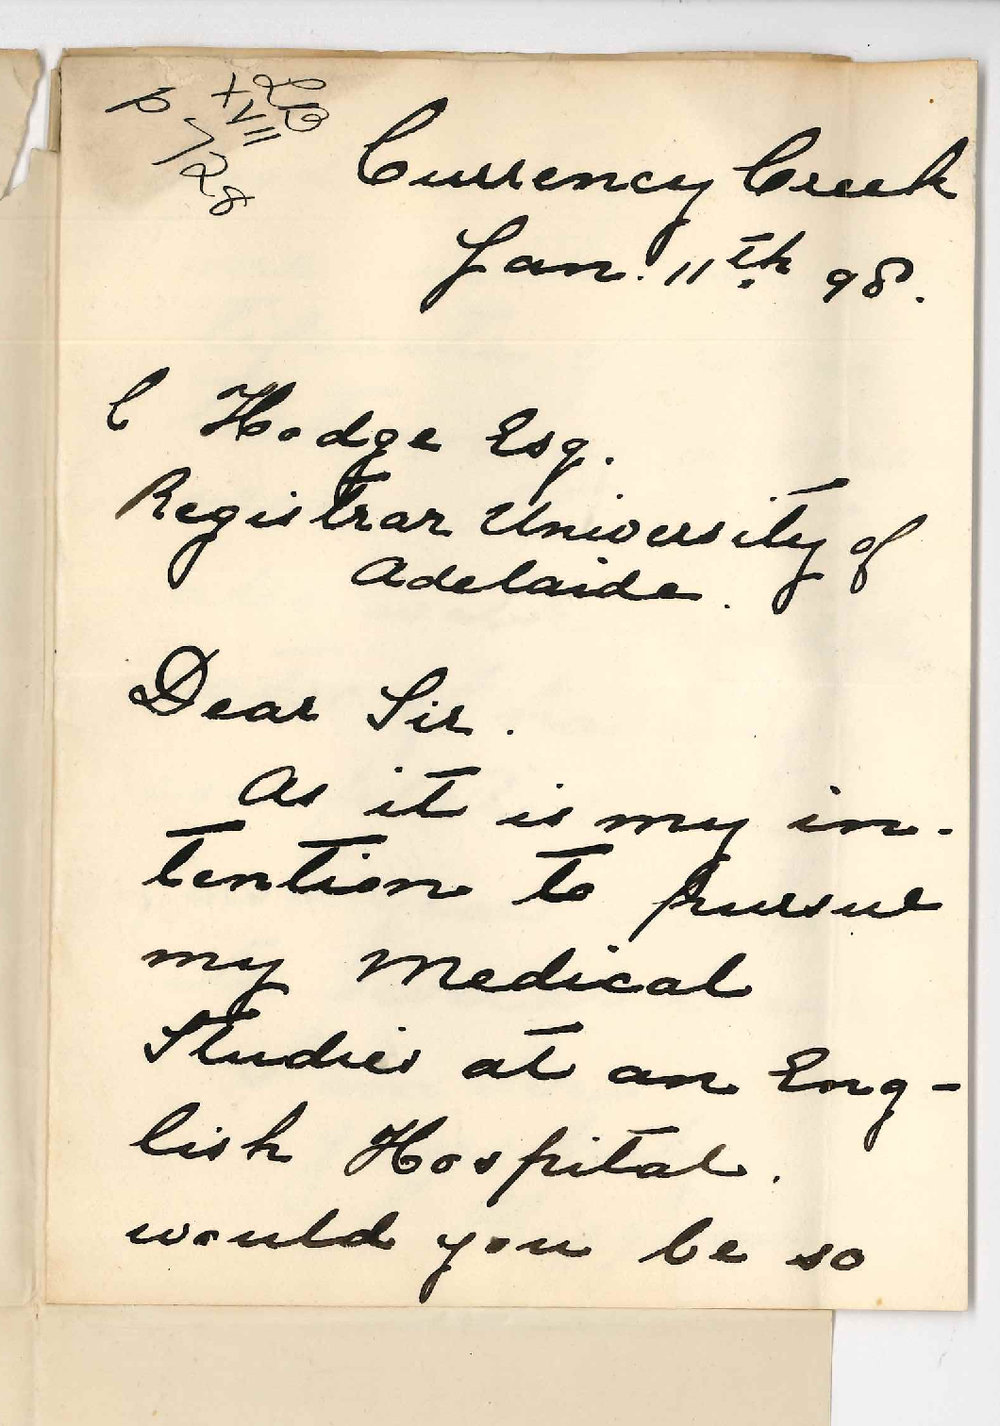 LB
XVII
p 728
Currency Creek
Jan. 11th 98.
C Hodge Esq.
Registrar University of
Adelaide.
Dear Sir.
As it is my in-
tention to pursue
my Medical
Studies at an Eng-
lish Hospital.
would you be so